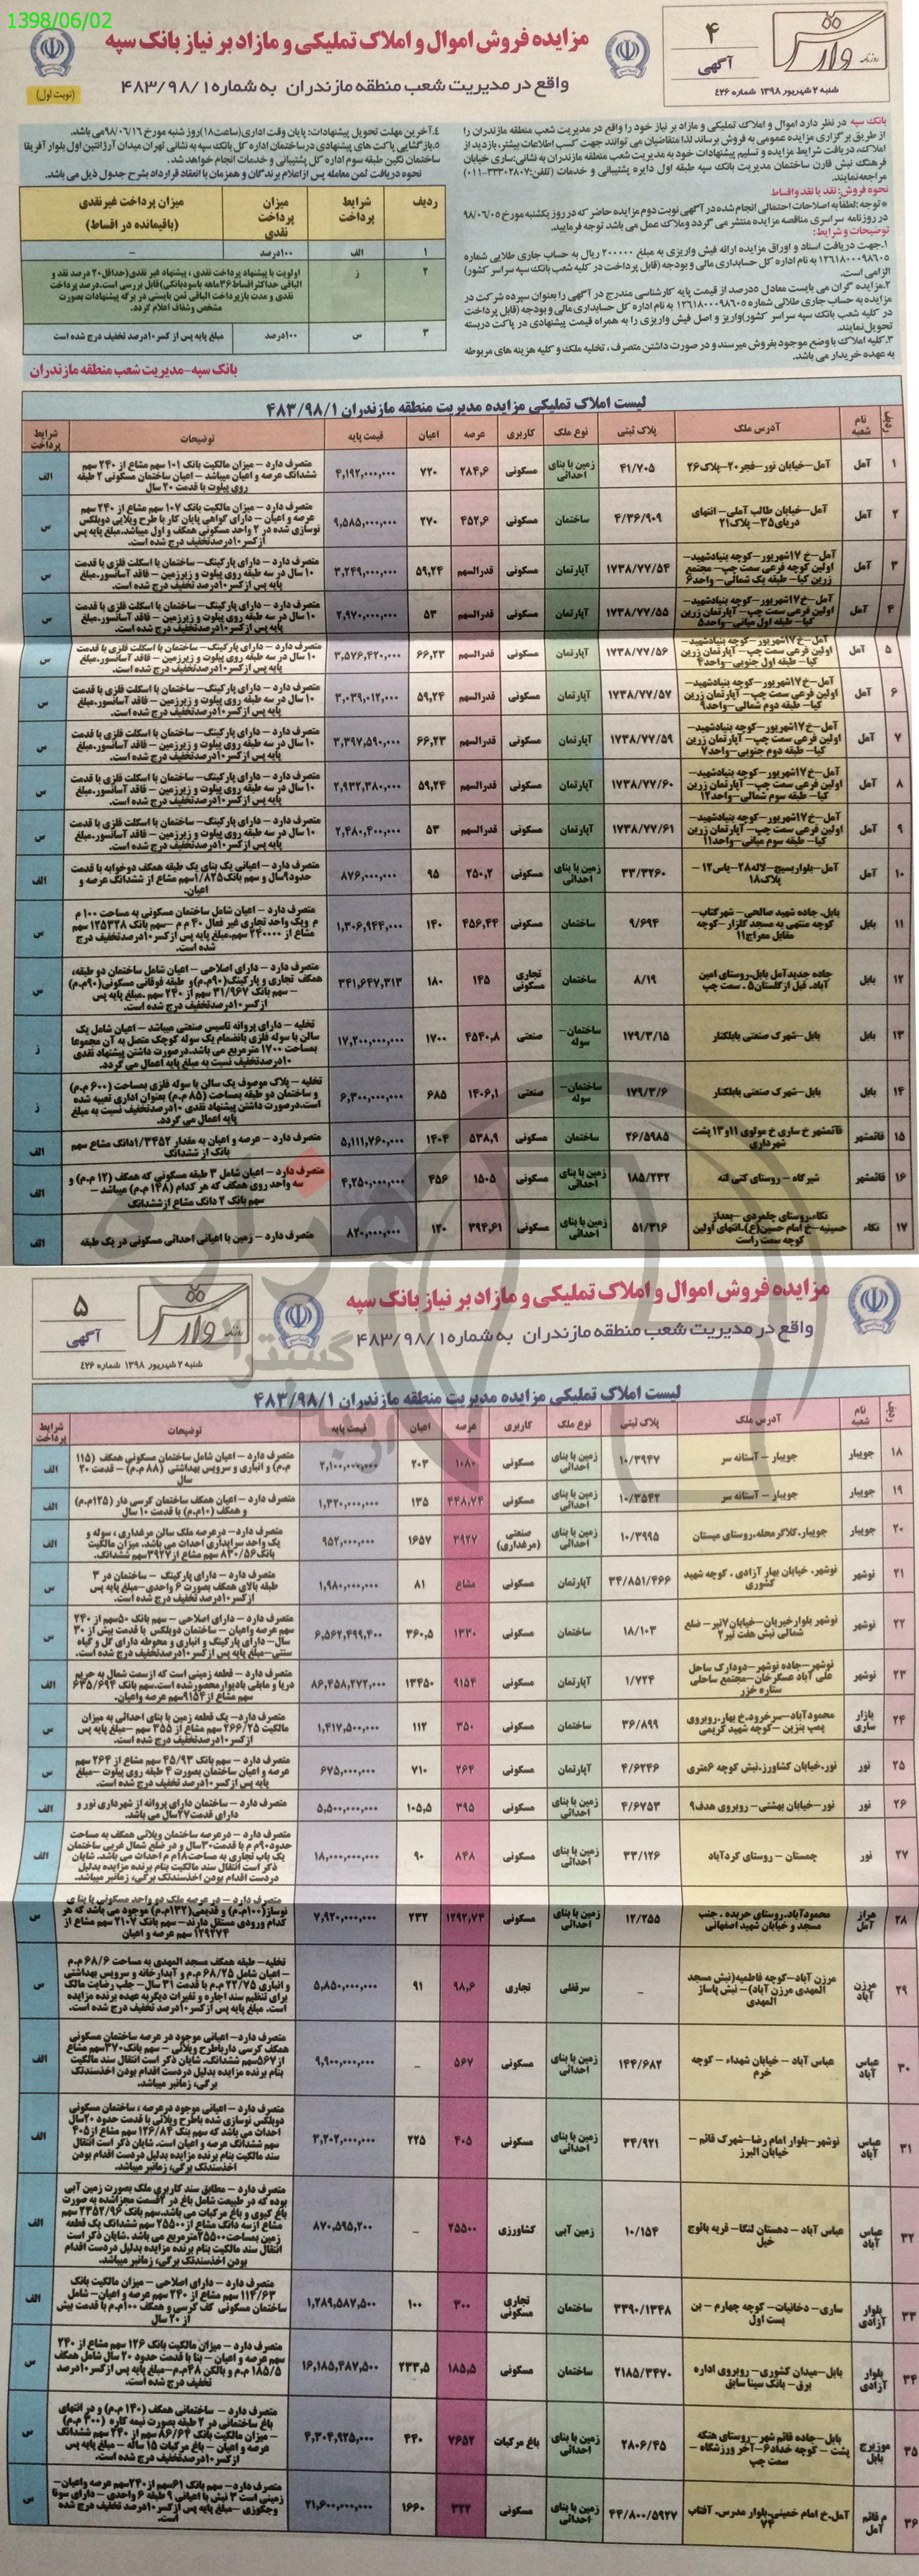 1398/06/02
مزایده فروش اموال و املاک تملیکی و مازاد بر نیاز بانک سپه
واقع در مدیریت شعب منطقه مازندران به شماره ۴۸۳/۹۸/۱
(نوبت اول)
۴
آگهی
روزنامه وارش
شنبه ۲ شهریور ۱۳۹۸ شماره ۴۲۶
بانک سپه در نظر دارد اموال و املاک تملیکی و مازاد بر نیاز خود را واقع در مدیریت شعب منطقه مازندران را
از طریق برگزاری مزایده عمومی به فروش برساند لذا متقاضیان می توانند جهت کسب اطلاعات بیشتر، بازدید از
املاک، دریافت شرایط مزایده و تسلیم پیشنهادات خود به مدیریت شعب منطقه مازندران به نشانی:ساری خیابان
فرهنگ نبش قارن ساختمان مدیریت بانک سپه طبقه اول دایره پشتیبانی و خدمات (تلفن:۳۳۳۰۲۸۰۷-۰۱۱)
مراجعه نمایند.
نحوه فروش: نقد یا نقد و اقساط
*توجه: لطفا به اصلاحات احتمالی انجام شده در آگهی نوبت دوم مزایده حاضر که در روز یکشنبه مورخ ۹۸/۰۶/۰۵
در روزنامه سراسری مناقصه مزایده منتشر می گردد و ملاک عمل می باشد توجه فرمایید.
توضیحات و شرایط:
۱.جهت دریافت اسناد و اوراق مزایده ارائه فیش واریزی به مبلغ ۲۰۰۰۰۰ ریال به حساب جاری طلایی شماره
۱۲۶۱۸۰۰۰۹۸۶۰۵ به نام اداره کل حسابداری مالی و بودجه (قابل پرداخت در کلیه شعب بانک سپه سراسر کشور)
الزامی است.
۲.مزایده گران می بایست معادل ۵درصد از قیمت پایه کارشناسی مندرج در آگهی را بعنوان سپرده شرکت در
مزایده به حساب جاری طلائی شماره ۱۲۶۱۸۰۰۰۹۸۶۰۵ به نام اداره کل حسابداری مالی و بودجه (قابل پرداخت
در کلیه شعب بانک سپه سراسر کشور)واریز و اصل فیش واریزی را به همراه قیمت پیشنهادی در پاکت دربسته
تحویل نمایند.
۳.کلیه املاک با وضع موجود بفروش میرسند و در صورت داشتن متصرف ، تخلیه ملک و کلیه هزینه های مربوطه
به عهده خریدار می باشد.
۴.آخرین مهلت تحویل پیشنهادات: پایان وقت اداری(ساعت۱۸)روز شنبه مورخ ۹۸/۰۶/۱۶می باشد.
۵.بازگشایی پاکت های پیشنهادی در ساختمان اداره کل بانک سپه به نشانی تهران میدان آرژانتین اول بلوار آفریقا
ساختمان نگین طبقه سوم اداره کل پشتیبانی و خدمات انجام خواهد شد.
نحوه دریافت ثمن معامله پس از اعلام برندگان و همزمان با انعقاد قرارداد بشرح جدول ذیل می باشد.
ردیف شرایط پرداخت میزان پرداخت نقدی میزان پرداخت غیر نقدی (باقیمانده در اقساط)
۱ الف ۱۰۰درصد –
۲ ز اولویت با پیشنهاد پرداخت نقدی ، پیشنهاد غیر نقدی(حداقل۲۰ درصد نقد و
الباقی حداکثر اقساط ۳۶ماهه باسودبانکی)قابل بررسی است.درصد پرداخت
نقدی و مدت بازپرداخت الباقی ثمن بایستی در برگه پیشنهادات بصورت
مشخص وشفاف اعلام گردد.
۳ س ۱۰۰درصد مبلغ پایه پس از کسر ۱۰درصد تخفیف درج شده است
بانک سپه-مدیریت شعب منطقه مازندران
لیست املاک تملیکی مزایده مدیریت منطقه مازندران ۴۸۳/۹۸/۱
ردیف نام شعبه آدرس ملک پلاک ثبتی نوع ملک کاربری عرصه اعیان قیمت پایه توضیحات شرایط پرداخت
۱ آمل آمل-خیابان نور-فجر۲۰-پلاک۲۶ ۴۱/۷۰۵ زمین با بنای احداثی مسکونی ۲۸۴,۶ ۷۲۰ ۴,۱۹۲,۰۰۰,۰۰۰ متصرف دارد – میزان مالکیت بانک ۱۰۱ سهم مشاع از ۲۴۰ سهم ششدانگ عرصه و اعیان میباشد – اعیان ساختمان مسکونی ۲ طبقه روی پیلوت با قدمت ۲۰ سال الف
۲ آمل آمل-خیابان طالب آملی- انتهای دریای۳۵- پلاک۲۱ ۴/۳۶/۹۰۹ ساختمان مسکونی ۴۵۲,۶ ۲۷۰ ۹,۵۸۵,۰۰۰,۰۰۰ متصرف دارد – میزان مالکیت بانک ۱۰۷ سهم مشاع از ۲۴۰ سهم عرصه و اعیان – دارای گواهی پایان کار با طرح ویلایی دوبلکس نوسازی شده در ۲ واحد مسکونی همکف و اول میباشد.مبلغ پایه پس از کسر۱۰درصد تخفیف درج شده است. س
۳ آمل آمل-خ ۱۷شهریور-کوچه بنیادشهید-اولین کوچه فرعی سمت چپ- مجتمع زرین کیا- طبقه یک شمالی- واحد۶ ۱۷۳۸/۷۷/۵۴ آپارتمان مسکونی قدرالسهم ۵۹,۲۴ ۳,۲۴۹,۰۰۰,۰۰۰ متصرف دارد – دارای پارکینگ- ساختمان با اسکلت فلزی با قدمت ۱۰ سال در سه طبقه روی پیلوت و زیرزمین – فاقد آسانسور.مبلغ پایه پس از کسر ۱۰درصد تخفیف درج شده است. س
۴ آمل آمل-خ۱۷شهریور-کوچه بنیادشهید-اولین فرعی سمت چپ- آپارتمان زرین کیا- طبقه اول میانی-واحد۵ ۱۷۳۸/۷۷/۵۵ آپارتمان مسکونی قدرالسهم ۵۳ ۲,۹۷۰,۰۰۰,۰۰۰ متصرف دارد – دارای پارکینگ- ساختمان با اسکلت فلزی با قدمت ۱۰ سال در سه طبقه روی پیلوت و زیرزمین – فاقد آسانسور.مبلغ پایه پس از کسر ۱۰درصد تخفیف درج شده است. س
۵ آمل آمل-خ۱۷شهریور-کوچه بنیادشهید-اولین فرعی سمت چپ- آپارتمان زرین کیا- طبقه اول جنوبی-واحد۴ ۱۷۳۸/۷۷/۵۶ آپارتمان مسکونی قدرالسهم ۶۶,۲۳ ۳,۵۷۶,۴۲۰,۰۰۰ متصرف دارد – دارای پارکینگ- ساختمان با اسکلت فلزی با قدمت ۱۰ سال در سه طبقه روی پیلوت و زیرزمین – فاقد آسانسور.مبلغ پایه پس از کسر ۱۰درصد تخفیف درج شده است. س
۶ آمل آمل-خ۱۷شهریور-کوچه بنیادشهید-اولین فرعی سمت چپ- آپارتمان زرین کیا- طبقه دوم شمالی-واحد۹ ۱۷۳۸/۷۷/۵۷ آپارتمان مسکونی قدرالسهم ۵۹,۲۴ ۳,۰۳۹,۰۱۲,۰۰۰ متصرف دارد – دارای پارکینگ- ساختمان با اسکلت فلزی با قدمت ۱۰ سال در سه طبقه روی پیلوت و زیرزمین – فاقد آسانسور.مبلغ پایه پس از کسر ۱۰درصد تخفیف درج شده است. س
۷ آمل آمل-خ۱۷شهریور-کوچه بنیادشهید-اولین فرعی سمت چپ- آپارتمان زرین کیا- طبقه دوم جنوبی-واحد۷ ۱۷۳۸/۷۷/۵۹ آپارتمان مسکونی قدرالسهم ۶۶,۲۳ ۳,۳۹۷,۵۹۰,۰۰۰ متصرف دارد – دارای پارکینگ- ساختمان با اسکلت فلزی با قدمت ۱۰ سال در سه طبقه روی پیلوت و زیرزمین – فاقد آسانسور.مبلغ پایه پس از کسر ۱۰درصد تخفیف درج شده است. س
۸ آمل آمل-خ۱۷شهریور-کوچه بنیادشهید-اولین فرعی سمت چپ- آپارتمان زرین کیا- طبقه سوم شمالی-واحد۱۲ ۱۷۳۸/۷۷/۶۰ آپارتمان مسکونی قدرالسهم ۵۹,۲۴ ۲,۹۳۲,۳۸۰,۰۰۰ متصرف دارد – دارای پارکینگ- ساختمان با اسکلت فلزی با قدمت ۱۰ سال در سه طبقه روی پیلوت و زیرزمین – فاقد آسانسور.مبلغ پایه پس از کسر ۱۰درصد تخفیف درج شده است. س
۹ آمل آمل-خ۱۷شهریور-کوچه بنیادشهید-اولین فرعی سمت چپ- آپارتمان زرین کیا- طبقه سوم میانی-واحد۱۱ ۱۷۳۸/۷۷/۶۱ آپارتمان مسکونی قدرالسهم ۵۳ ۲,۴۸۰,۴۰۰,۰۰۰ متصرف دارد – دارای پارکینگ- ساختمان با اسکلت فلزی با قدمت ۱۰ سال در سه طبقه روی پیلوت و زیرزمین – فاقد آسانسور.مبلغ پایه پس از کسر ۱۰درصد تخفیف درج شده است. س
۱۰ آمل آمل-بلوار بسیج-لاله۲۸-یاس۱۲-پلاک۱۸ ۳۳/۳۲۶۰ زمین با بنای احداثی مسکونی ۲۵۰,۲ ۹۵ ۸۷۶,۰۰۰,۰۰۰ متصرف دارد – اعیانی یک بنای یک طبقه همکف دوخوابه با قدمت حدود۹سال و سهم بانک۱/۸۲۵سهم مشاع از ششدانگ عرصه و اعیان. الف
۱۱ بابل بابل. جاده شهید صالحی- شهرکتاب-کوچه منتهی به مسجد گلزار-کوچه مقابل معراج۱۱ ۹/۶۹۴ ساختمان مسکونی ۴۵۶,۴۴ ۱۴۰ ۱,۳۰۶,۹۴۴,۰۰۰ متصرف دارد – اعیان شامل ساختمان مسکونی به مساحت ۱۰۰ م م ویک واحد تجاری غیر فعال ۴۰ م م –سهم بانک ۱۲۵۳۲۸ سهم مشاع از ۲۴۰۰۰۰ سهم.مبلغ پایه پس از کسر۱۰درصدتخفیف درج شده است. س
۱۲ بابل جاده جدیدآمل بابل.روستای امین آباد. قبل ازگلستان۵. سمت چپ ۸/۱۹ ساختمان تجاری مسکونی ۱۴۵ ۱۸۰ ۳۴۱,۶۴۷,۳۱۳ متصرف دارد – دارای اصلاحی – اعیان شامل ساختمان دو طبقه، همکف تجاری و پارکینگ(۹۰م.م)و طبقه فوقانی مسکونی(۹۰م.م) – سهم بانک ۳۱/۹۶۷ سهم از ۲۴۰ سهم .مبلغ پایه پس از کسر۱۰درصد تخفیف درج شده است. س
۱۳ بابل بابل-شهرک صنعتی بابلکنار ۱۷۹/۳/۱۵ ساختمان-سوله صنعتی ۴۵۴۰,۸ ۱۷۰۰ ۱۷,۲۰۰,۰۰۰,۰۰۰ تخلیه – دارای پروانه تاسیس صنعتی میباشد – اعیان شامل یک سالن با سوله فلزی بانضمام یک سوله کوچک متصل به آن مجموعا بمساحت ۱۷۰۰ مترمربع می باشد.درصورت داشتن پیشنهاد نقدی ۱۰درصدتخفیف نسبت به مبلغ پایه اعمال می گردد. ز
۱۴ بابل بابل-شهرک صنعتی بابلکنار ۱۷۹/۳/۶ ساختمان-سوله صنعتی ۱۴۰۶,۱ ۶۸۵ ۶,۳۰۰,۰۰۰,۰۰۰ تخلیه – پلاک موصوف یک سالن با سوله فلزی بمساحت (۶۰۰ م.م) و ساختمان دو طبقه بمساحت (۸۵ م.م) بعنوان اداری تعبیه شده است.درصورت داشتن پیشنهاد نقدی ۱۰درصدتخفیف نسبت به مبلغ پایه اعمال می گردد. ز
۱۵ قائمشهر قائمشهر خ ساری خ مولوی ۱۱و۱۳ پشت شهرداری ۲۶/۵۹۸۵ ساختمان مسکونی ۵۳۸,۹ ۱۴۰۴ ۵,۱۱۱,۷۶۰,۰۰۰ متصرف دارد – عرصه و اعیان به مقدار ۱/۳۴۵۲دانگ مشاع سهم بانک از ششدانگ الف
۱۶ قائمشهر شیرگاه – روستای کتی لته ۱۸۵/۲۳۲ زمین با بنای احداثی مسکونی ۱۵۰۵ ۴۵۶ ۴,۲۵۰,۰۰۰,۰۰۰ متصرف دارد – اعیان شامل ۳ طبقه مسکونی که همکف (۱۲ م.م) و سه واحد روی همکف که هر کدام (۱۴۸ م.م) میباشد – سهم بانک ۲ دانگ مشاع ازششدانگ الف
۱۷ نکاء نکاء.روستای چلمردی -بعداز حسینیه-خ امام حسین(ع)-انتهای اولین کوچه سمت راست ۵۱/۳۱۶ زمین با بنای احداثی مسکونی ۳۹۴,۶۱ ۱۳۰ ۸۲۰,۰۰۰,۰۰۰ متصرف دارد – زمین با اعیانی احداثی مسکونی در یک طبقه الف
مزایده فروش اموال و املاک تملیکی و مازاد بر نیاز بانک سپه
واقع در مدیریت شعب منطقه مازندران به شماره ۴۸۳/۹۸/۱
روزنامه وارش
۵
آگهی
شنبه ۲ شهریور ۱۳۹۸ شماره ۴۲۶
لیست املاک تملیکی مزایده مدیریت منطقه مازندران ۴۸۳/۹۸/۱
ردیف نام شعبه آدرس ملک پلاک ثبتی نوع ملک کاربری عرصه اعیان قیمت پایه توضیحات شرایط پرداخت
۱۸ جویبار جویبار – آستانه سر ۱۰/۳۹۴۷ زمین با بنای احداثی مسکونی ۱۰۸۰ ۲۰۳ ۲,۱۰۰,۰۰۰,۰۰۰ متصرف دارد – اعیان شامل ساختمان مسکونی همکف (۱۱۵ م.م) و انباری و سرویس بهداشتی (۸۸ م.م) – قدمت ۲۰ سال الف
۱۹ جویبار جویبار – آستانه سر ۱۰/۳۵۴۲ زمین با بنای احداثی مسکونی ۴۴۸,۷۴ ۱۳۵ ۱,۳۲۰,۰۰۰,۰۰۰ متصرف دارد – اعیان همکف ساختمان کرسی دار (۱۲۵م.م) و همکف (۱۰م.م) با قدمت ۱۰ سال الف
۲۰ جویبار جویبار.کلاگرمحله.روستای میستان ۱۰/۳۹۹۵ زمین با بنای احداثی صنعتی (مرغداری) ۳۹۲۷ ۱۶۵۷ ۹۵۲,۰۰۰,۰۰۰ متصرف دارد- درعرصه ملک سالن مرغداری ، سوله و یک واحد سرایداری احداث می باشد. میزان مالکیت بانک۸۳۰/۵۶ سهم مشاع از۳۹۲۷سهم ششدانگ. الف
۲۱ نوشهر نوشهر. خیابان بهار آزادی . کوچه شهید کشوری ۳۴/۸۵۱/۴۶۶ آپارتمان مسکونی مشاع ۸۱ ۱,۹۸۰,۰۰۰,۰۰۰ متصرف دارد – دارای پارکینگ – ساختمان در ۳ طبقه بالای همکف بصورت ۶ واحدی-مبلغ پایه پس ازکسر۱۰درصد تخفیف درج شده است. س
۲۲ نوشهر نوشهر بلوارخیریان-خیابان۷تیر- ضلع شمالی نبش هفت تیر۲ ۱۸/۱۰۳ ساختمان مسکونی ۱۳۳۰ ۳۶۰,۵ ۶,۵۶۲,۴۹۹,۴۰۰ متصرف دارد – دارای اصلاحی – سهم بانک ۵۰سهم از ۲۴۰ سهم عرصه واعیان – ساختمان دوبلکس با قدمت بیش از ۳۰ سال- دارای پارکینگ و انباری و محوطه دارای گل و گیاه سنتی-مبلغ پایه پس ازکسر۱۰درصدتخفیف درج شده است. س
۲۳ نوشهر نوشهر-جاده نوشهر-دودارک ساحل علی آباد عسکرخان-مجتمع ساحلی ستاره خزر ۱/۷۲۴ آپارتمان مسکونی ۹۱۵۴ ۱۳۴۵۰ ۸۶,۴۵۸,۲۷۲,۰۰۰ متصرف دارد – قطعه زمینی است که ازسمت شمال به حریم دریا و مابقی بادیوارمحصورشده است.سهم بانک ۶۳۵/۶۹۴ سهم مشاع از۹۱۵۴سهم عرصه واعیان. الف
۲۴ بازار ساری محمودآباد-سرخرود.خ بهار.روبروی پمپ بنزین -کوچه شهید کریمی ۳۶/۸۹۹ ساختمان مسکونی ۳۵۰ ۱۱۲ ۱,۴۱۷,۵۰۰,۰۰۰ متصرف دارد- یک قطعه زمین با بنای احداثی به میزان مالکیت ۲۶۶/۲۵ سهم مشاع از ۳۵۵ سهم –مبلغ پایه پس ازکسر۱۰درصدتخفیف درج شده است. س
۲۵ نور نور.خیابان کشاورز.نبش کوچه ۶متری ۴/۶۲۴۶ آپارتمان مسکونی ۲۶۴ ۷۱۰ ۶۷۵,۰۰۰,۰۰۰ متصرف دارد – سهم بانک ۴۵/۹۳ سهم مشاع از ۲۶۴ سهم عرصه و اعیان ساختمان بصورت ۴ طبقه روی پیلوت –مبلغ پایه پس ازکسر۱۰درصد تخفیف درج شده است. س
۲۶ نور نور-خیابان بهشتی- روبروی هدف۹ ۴/۶۷۵۳ زمین با بنای احداثی مسکونی ۳۹۵ ۱۰۵,۵ ۵,۵۰۰,۰۰۰,۰۰۰ متصرف دارد – ساختمان دارای پروانه از شهرداری نور و دارای قدمت۲۷سال می باشد. الف
۲۷ نور چمستان – روستای کردآباد ۳۳/۱۲۶ زمین با بنای احداثی مسکونی ۸۴۸ ۹۰ ۱۸,۰۰۰,۰۰۰,۰۰۰ متصرف دارد – درعرصه ساختمان ویلائی همکف به مساحت حدود۹۰م م با قدمت۳۰سال و در ضلع شمال غربی ساختمان یک باب تجاری به مساحت۱۸م م احداث می باشد. شایان ذکر است انتقال سند مالکیت بنام برنده مزایده بدلیل دردست اقدام بودن اخذسندتک برگی، زمانبر میباشد. الف
۲۸ هراز آمل محمودآباد.روستای حربده . جنب مسجد و خیابان شهید اصفهانی ۱۲/۲۵۵ زمین با بنای احداثی مسکونی ۱۲۹۲,۷۴ ۲۳۲ ۷,۹۲۰,۰۰۰,۰۰۰ متصرف دارد- در عرصه ملک دو واحد مسکونی با بنای نوساز(۱۰۰م.م) و قدیمی(۱۳۲م.م) موجود می باشد که هر کدام ورودی مستقل دارند- سهم بانک ۲۱۰۷ سهم مشاع از ۱۲۹۲۷۴ سهم عرصه و اعیان س
۲۹ مرزن آباد مرزن آباد-کوچه فاطمیه(نبش مسجد المهدی مرزن آباد)- نبش پاساژ المهدی – سرقفلی تجاری ۹۸,۶ ۹۱ ۵,۸۵۰,۰۰۰,۰۰۰ تخلیه- طبقه همکف مسجد المهدی به مساحت ۶۸/۶ م.م – اعیان شامل ۶۸/۲۵ م.م و آبدارخانه و سرویس بهداشتی و انباری ۲۲/۷۵ م.م با قدمت ۳۱ سال- جلب رضایت مالک برای تنظیم سند اجاره و تغیرات دیگربه عهده برنده مزایده است. مبلغ پایه پس ازکسر۱۰درصد تخفیف درج شده است. س
۳۰ عباس آباد عباس آباد – خیابان شهداء – کوچه خرم ۱۴۴/۶۸۲ زمین با بنای احداثی مسکونی ۵۶۷ – ۹,۹۰۰,۰۰۰,۰۰۰ متصرف دارد- اعیانی موجود در عرصه ساختمان مسکونی همکف کرسی دارباطرح ویلائی – سهم بانک۳۷۰سهم مشاع از۵۶۷سهم ششدانگ. شایان ذکر است انتقال سند مالکیت بنام برنده مزایده بدلیل دردست اقدام بودن اخذسندتک برگی، زمانبر میباشد. الف
۳۱ عباس آباد نوشهر-بلوار امام رضا-شهرک قائم – خیابان البرز ۳۴/۹۲۱ زمین با بنای احداثی مسکونی ۴۰۵ ۲۲۵ ۳,۲۰۲,۰۰۰,۰۰۰ متصرف دارد – اعیانی موجود درعرصه ، ساختمان مسکونی دوبلکس نوسازی شده باطرح ویلائی با قدمت حدود ۲۰سال احداث می باشد که سهم بنک ۱۲۶/۸۴ سهم مشاع از۴۰۵ سهم ششدانگ عرصه و اعیان است. شایان ذکر است انتقال سند مالکیت بنام برنده مزایده بدلیل دردست اقدام بودن اخذسندتک برگی، زمانبر میباشد. الف
۳۲ عباس آباد عباس آباد – دهستان لنگا- قریه بائوج خیل ۱۰/۱۵۴ زمین آبی کشاورزی ۲۵۵۰۰ – ۸۷۰,۵۹۵,۲۰۰ متصرف دارد – مطابق سند کاربری ملک بصورت زمین آبی بوده که در طبیعت شامل باغ در ۲قسمت مجزاشده به صورت باغ کیوی و باغ مرکبات می باشد.سهم بانک ۲۳۵۲/۹۶ سهم مشاع ازسه دانگ مشاع از۲۵۵۰۰ سهم ششدانگ یک قطعه زمین بمساحت۲۵۵۰۰مترمربع می باشد .شایان ذکر است انتقال سند مالکیت بنام برنده مزایده بدلیل دردست اقدام بودن اخذسندتک برگی، زمانبر میباشد. الف
۳۳ بلوار آزادی ساری- دخانیات- کوچه چهارم – بن بست اول ۳۳۹۰/۱۳۴۸ ساختمان تجاری مسکونی ۳۰۰ ۱۰۰ ۱,۲۸۹,۵۸۷,۵۰۰ متصرف دارد – دارای اصلاحی – میزان مالکیت بانک ۱۱۴/۶۳ سهم مشاع از ۲۴۰ سهم عرصه و اعیان- شامل ساختمان مسکونی کف کرسی و همکف ۱۰۰م.م با قدمت بیش از ۲۰ سال الف
۳۴ بلوار آزادی بابل-میدان کشوری- روبروی اداره برق- بانک سینا سابق ۲۱۸۵/۳۴۷۰ ساختمان مسکونی ۱۸۵,۵ ۲۳۳,۵ ۱۶,۱۸۵,۴۸۷,۵۰۰ متصرف دارد – میزان مالکیت بانک ۱۲۶ سهم مشاع از ۲۴۰ سهم عرصه و اعیان – بنا با قدمت حدود ۲۰ سال شامل همکف ۱۸۵/۵ م.م و بالکن ۴۸م.م-مبلغ پایه پس ازکسر۱۰درصد تخفیف درج شده است. س
۳۵ موزیرج بابل بابل-جاده قائم شهر-روستای هتکه پشت – کوچه خداد۶-آخر ورزشگاه – سمت چپ ۲۸۰۶/۴۵ زمین با بنای احداثی باغ مرکبات ۷۶۵۲ ۴۴۰ ۴,۳۰۴,۹۲۵,۰۰۰ متصرف دارد – ساختمانی همکف (۱۴۰ م.م) و در انتهای باغ ساختمانی در ۲ طبقه بصورت نیمه کاره (۳۰۰ م.م) – میزان مالکیت بانک ۸۶/۶۴ سهم از ۲۴۰ سهم ششدانگ عرصه و اعیان – باغ مرکبات ۱۵ ساله – مبلغ پایه پس ازکسر۱۰درصدتخفیف درج شده است. س
۳۶ م قائم آمل آمل.خ امام خمینی.بلوار مدرس. آفتاب ۷۴ ۴۴/۸۰۰/۵۹۲۷ زمین با بنای احداثی مسکونی ۳۲۲ ۱۶۶۰ ۲۱,۶۰۰,۰۰۰,۰۰۰ متصرف دارد- سهم بانک ۶۱سهم از۲۴۰سهم عرصه واعیان- زمینی است ۳ نبش با اعیانی ۹ طبقه ۶ واحدی – دارای سونا وجکوزی – مبلغ پایه پس ازکسر ۱۰درصد تخفیف درج شده است. س